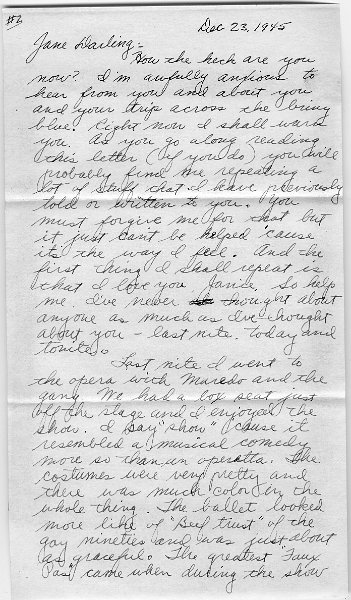 #2
Dec 23, 1945
Jane Darling:-
How the heck are you
now? I'm awfully anxious to
hear from you and about you
and your trip across the briny
blue. Right now I shall warn
you. As you go along reading
this letter (if you do) you will
probably find me repeating a
lot of stuff that I have previously
told or written to you. You
must forgive me for that but
it just can't be helped 'cause
its the way I feel. And the
first thing I shall repeat is
that I love you, Janie. So help
me. I've never thought about
anyone as much as I've thought
about you - last nite, today and
tonite.
Last nite I went to
the opera with Maredo and the
gang. We had a box seat just
off the stage and I enjoyed the
show. I say "show" 'cause it
resembled a musical comedy
more so than an operetta. The
costumes were very pretty and
there was much color in the
whole thing. The ballet looked
more like a "Beef trust" of the
gay nineties and was just about
as graceful. The greatest "Faux
Pas" came when during the show